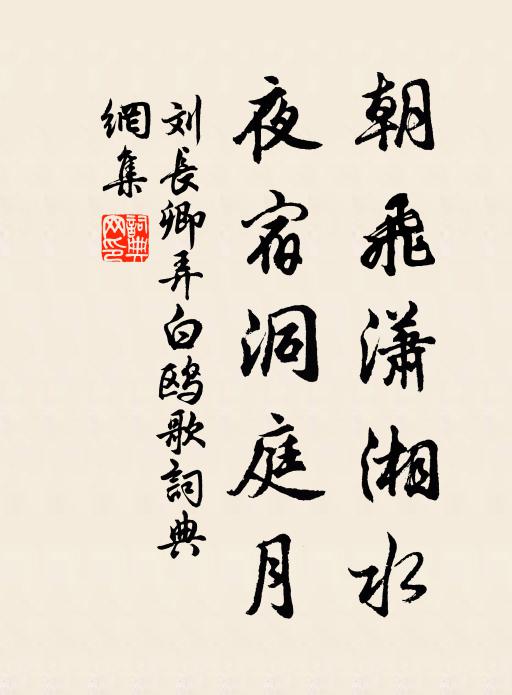 朝飛瀟湘水
夜宿洞庭月
刘長卿弄白鸥歌詞典
網集
詞典
网印